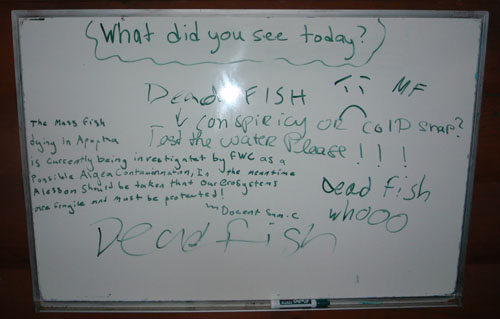 What did you see today?
Dead FISH
MF
Conspiricy OR COLD snap?
Test the water Please!!!!
The Mass Fish
dying in Apopka
is currently being investigatet by FWC as a
Possible Algea Contamination, In the meantime
A lesson should be taken that our ecosystems
are fragile and must be protected!
Docent Sam.C
Dead fish
whooo
Dead fish